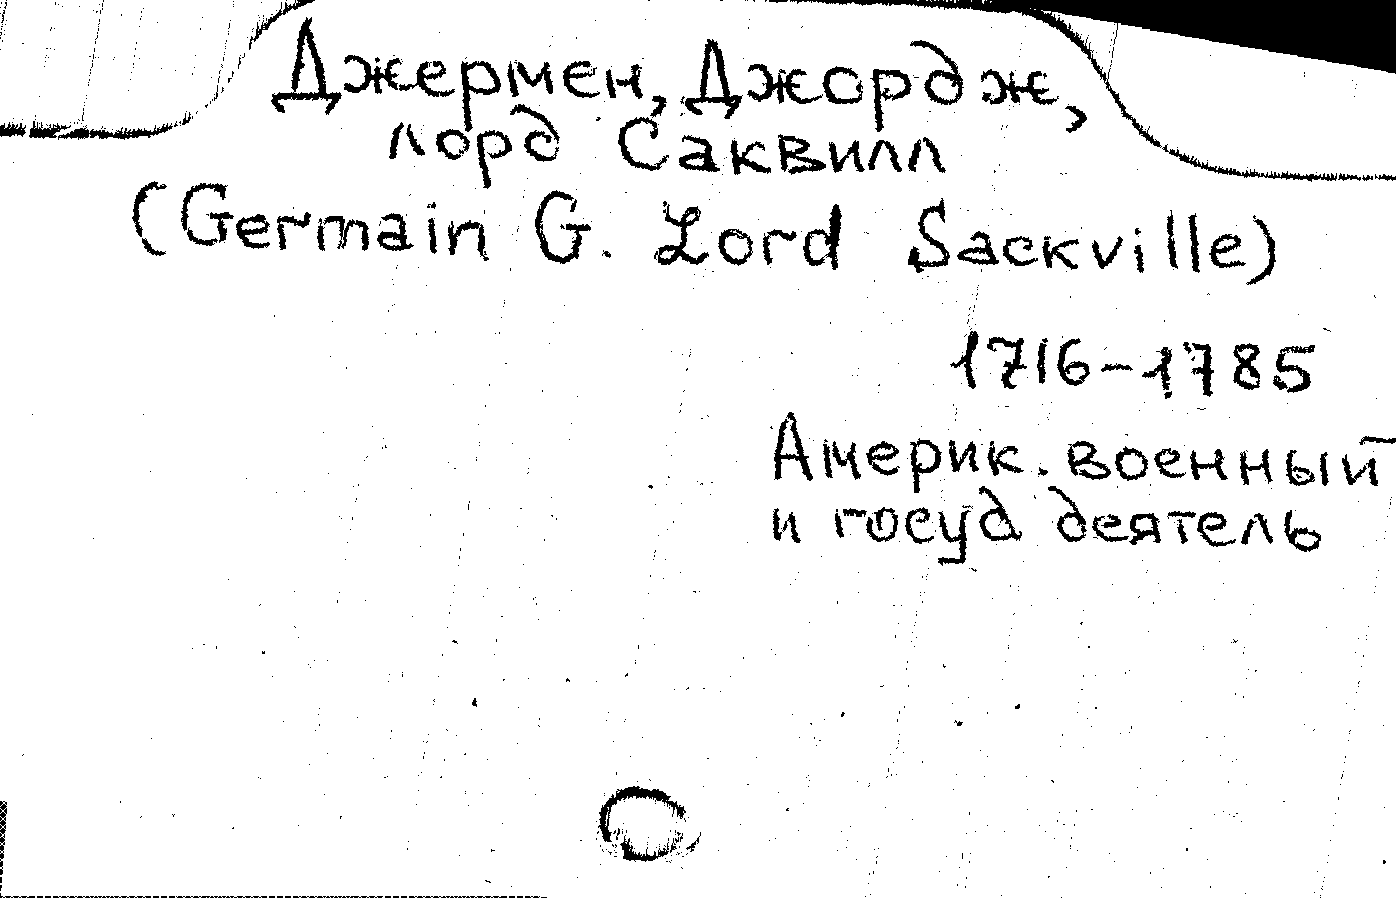 Джермен, Джордж,
лорд Саквилл
(Germain G. Lord Sackville)
1716-1785
Америк. военный
и госуд деятель